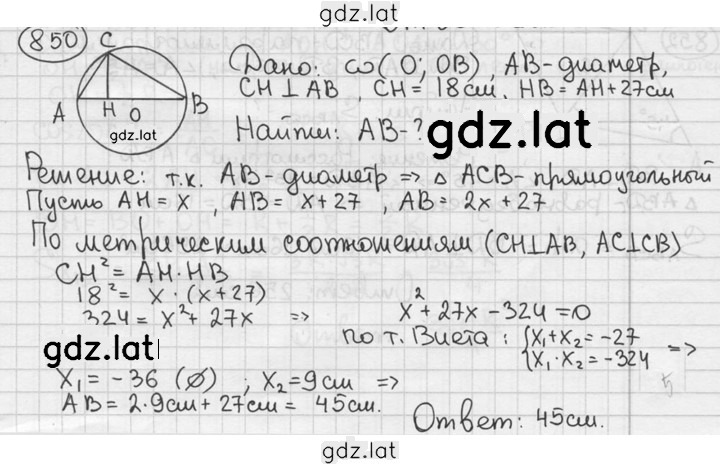 gdz.lat
850
C
A H O B
gdz.lat
Дано: ω(O; OB), AB-диаметр,
CH⊥AB, CH=18см. HB=AH+27см
Найти: AB-?
gdz.lat
Решение: т.к. AB-диаметр => △ ACB-прямоугольный
Пусть AH=x, HB=x+27, AB=2x+27
По метрическим соотношениям (CH⊥AB, AC⊥CB)
CH²=AH·HB
18²=x·(x+27)
324=x²+27x => x²+27x-324=0
по т. Виета: {x₁+x₂=-27
{x₁·x₂=-324 =>
gdz.lat
x₁=-36 (∅) ; x₂=9см =>
AB=2·9см+27см=45см.
Ответ: 45см.
gdz.lat